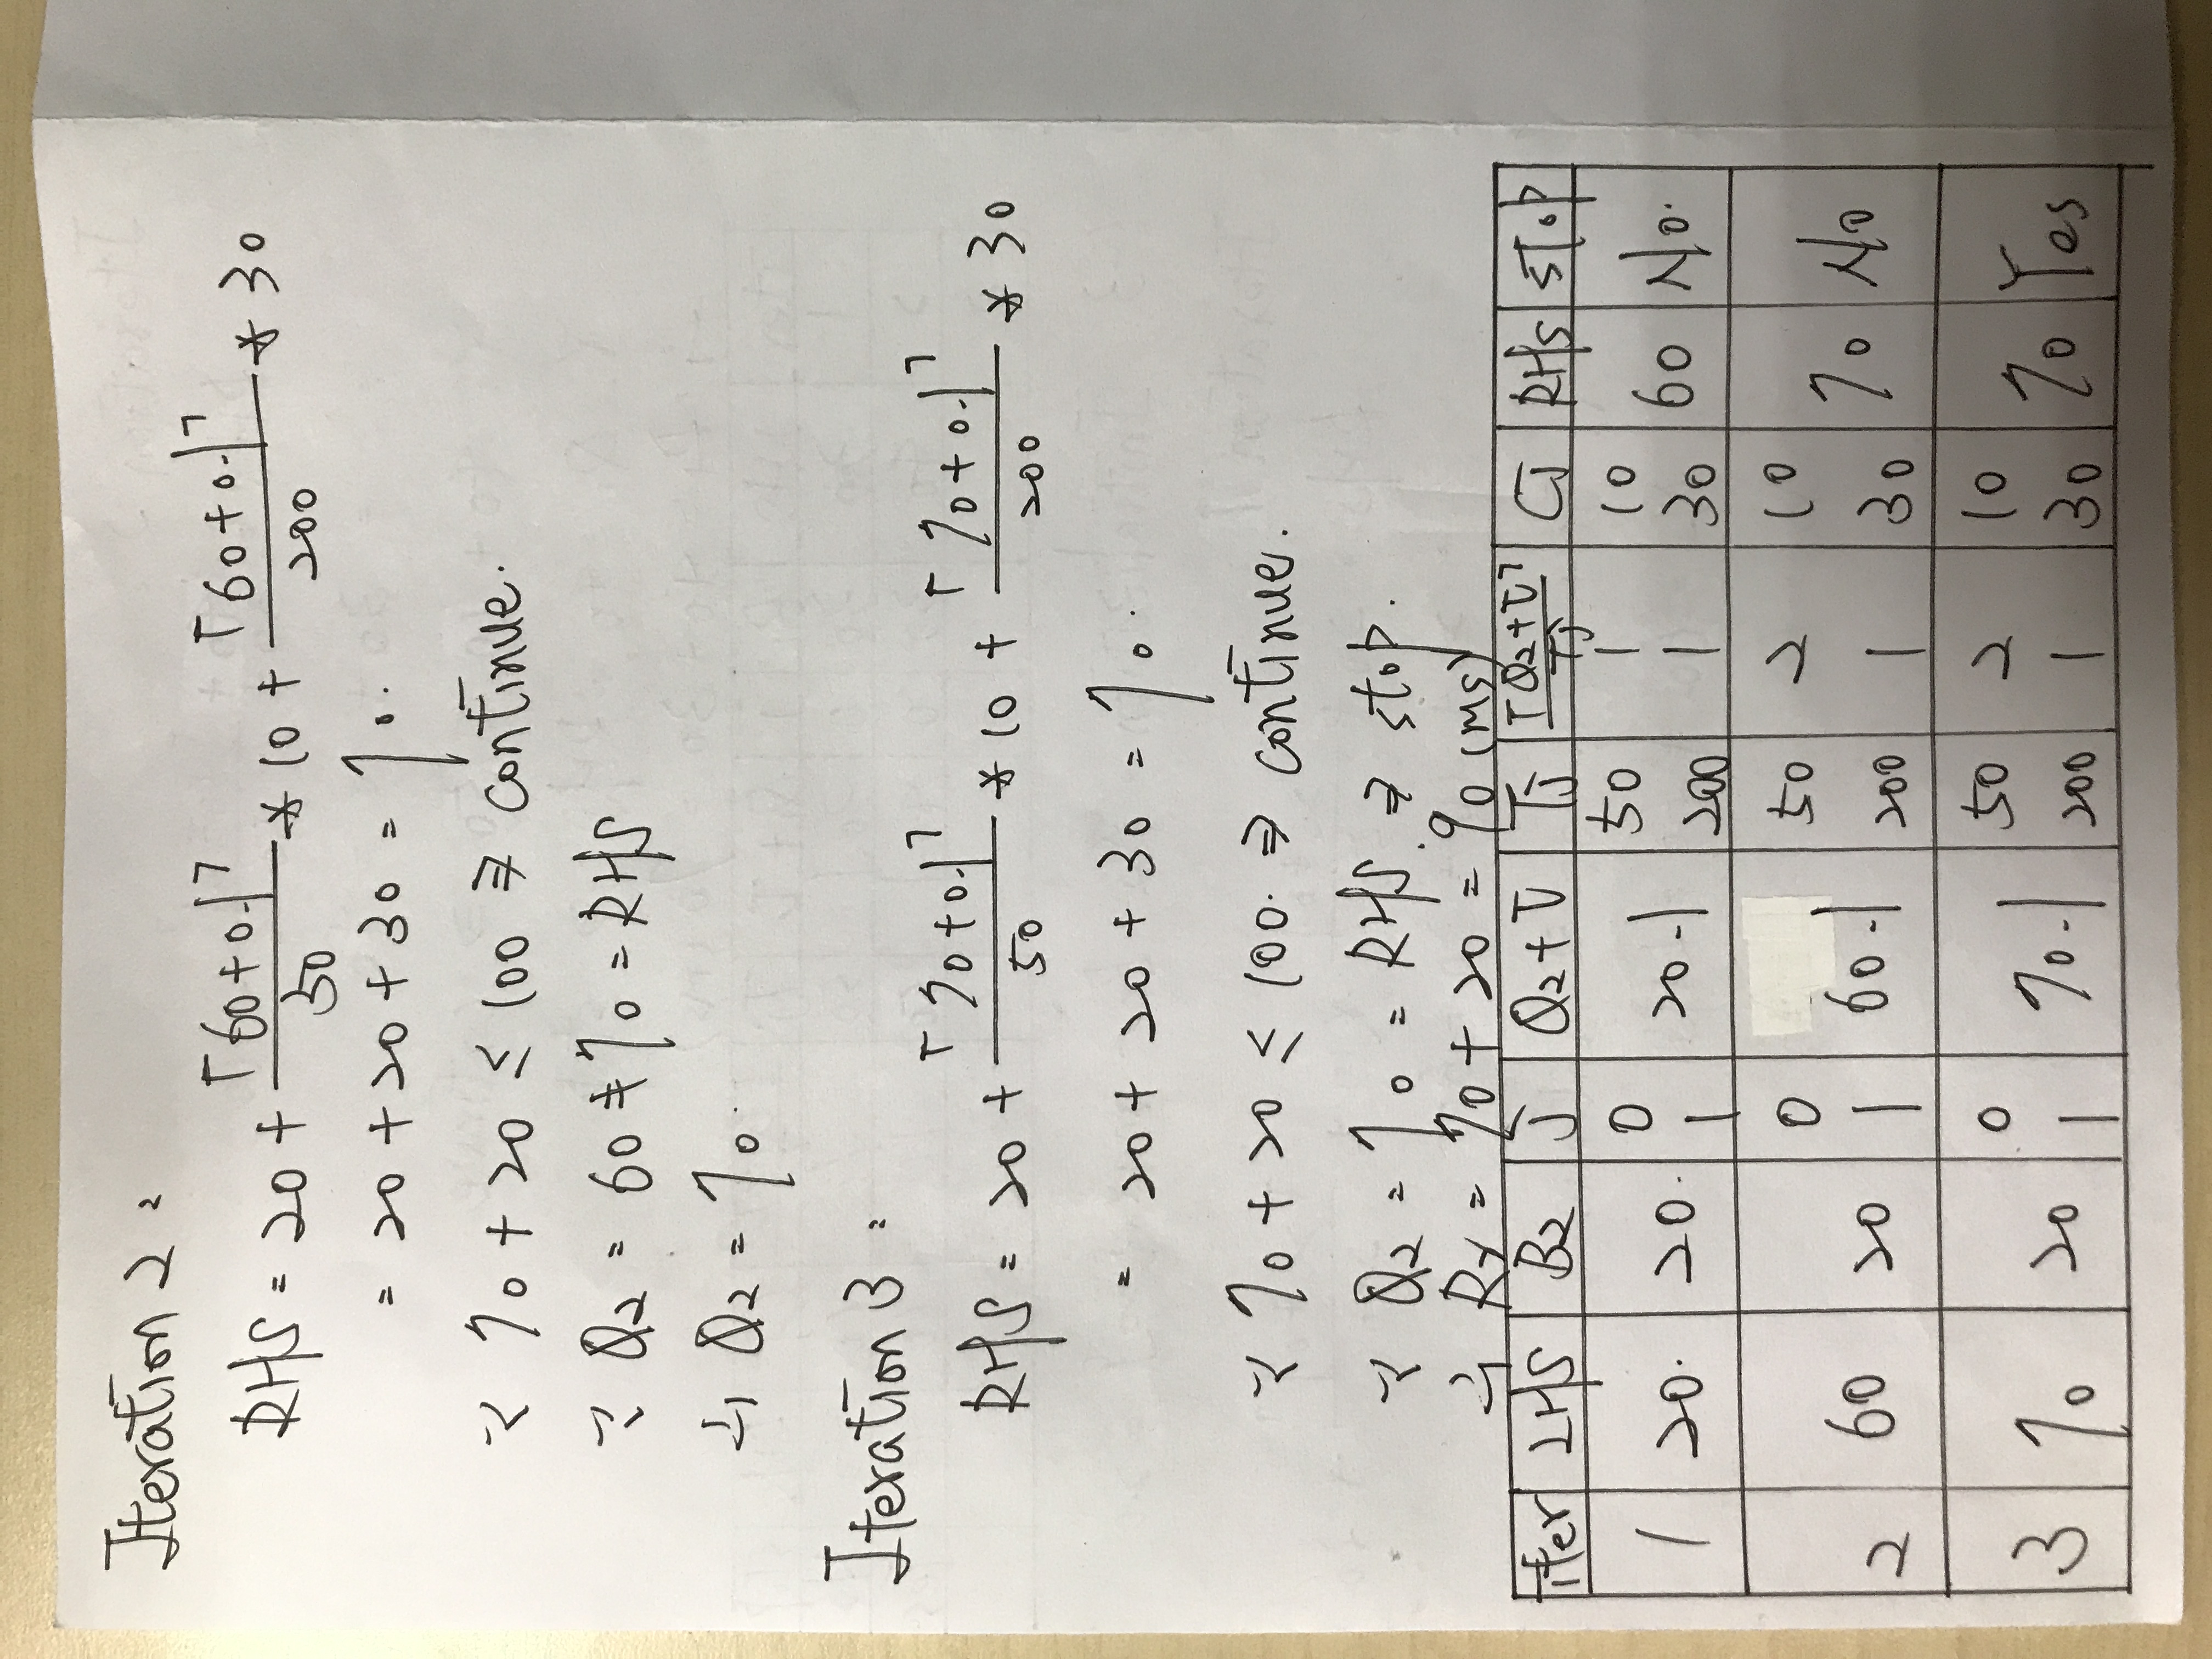 Iteration 2 :
RHS = 20 + ⌈60+0.1⌉/50 * 10 + ⌈60+0.1⌉/200 * 30
= 20 + 20 + 30 = 70.
∵ 70 + 20 ≤ 100 ⇒ continue.
∵ Q2 = 60 ≠ 70 = RHS
∴ Q2 = 70.
Iteration 3 :
RHS = 20 + ⌈70+0.1⌉/50 * 10 + ⌈70+0.1⌉/200 * 30
= 20 + 20 + 30 = 70.
∵ 70 + 20 ≤ 100. ⇒ continue.
∵ Q2 = 70 = RHS. ⇒ stop.
∴ R2 = 70 + 20 = 90 (ms)
iter LHS B2 J Q2+τ Tj ⌈Q2+τ⌉/Tj Cj RHS stop
1 20. 20. 0 20.1 50 1 10 60 No.
1 200 1 30
2 60 20 0 60.1 50 2 10 70 No
1 200 1 30
3 70 20 0 70.1 50 2 10 70 Yes
1 200 1 30